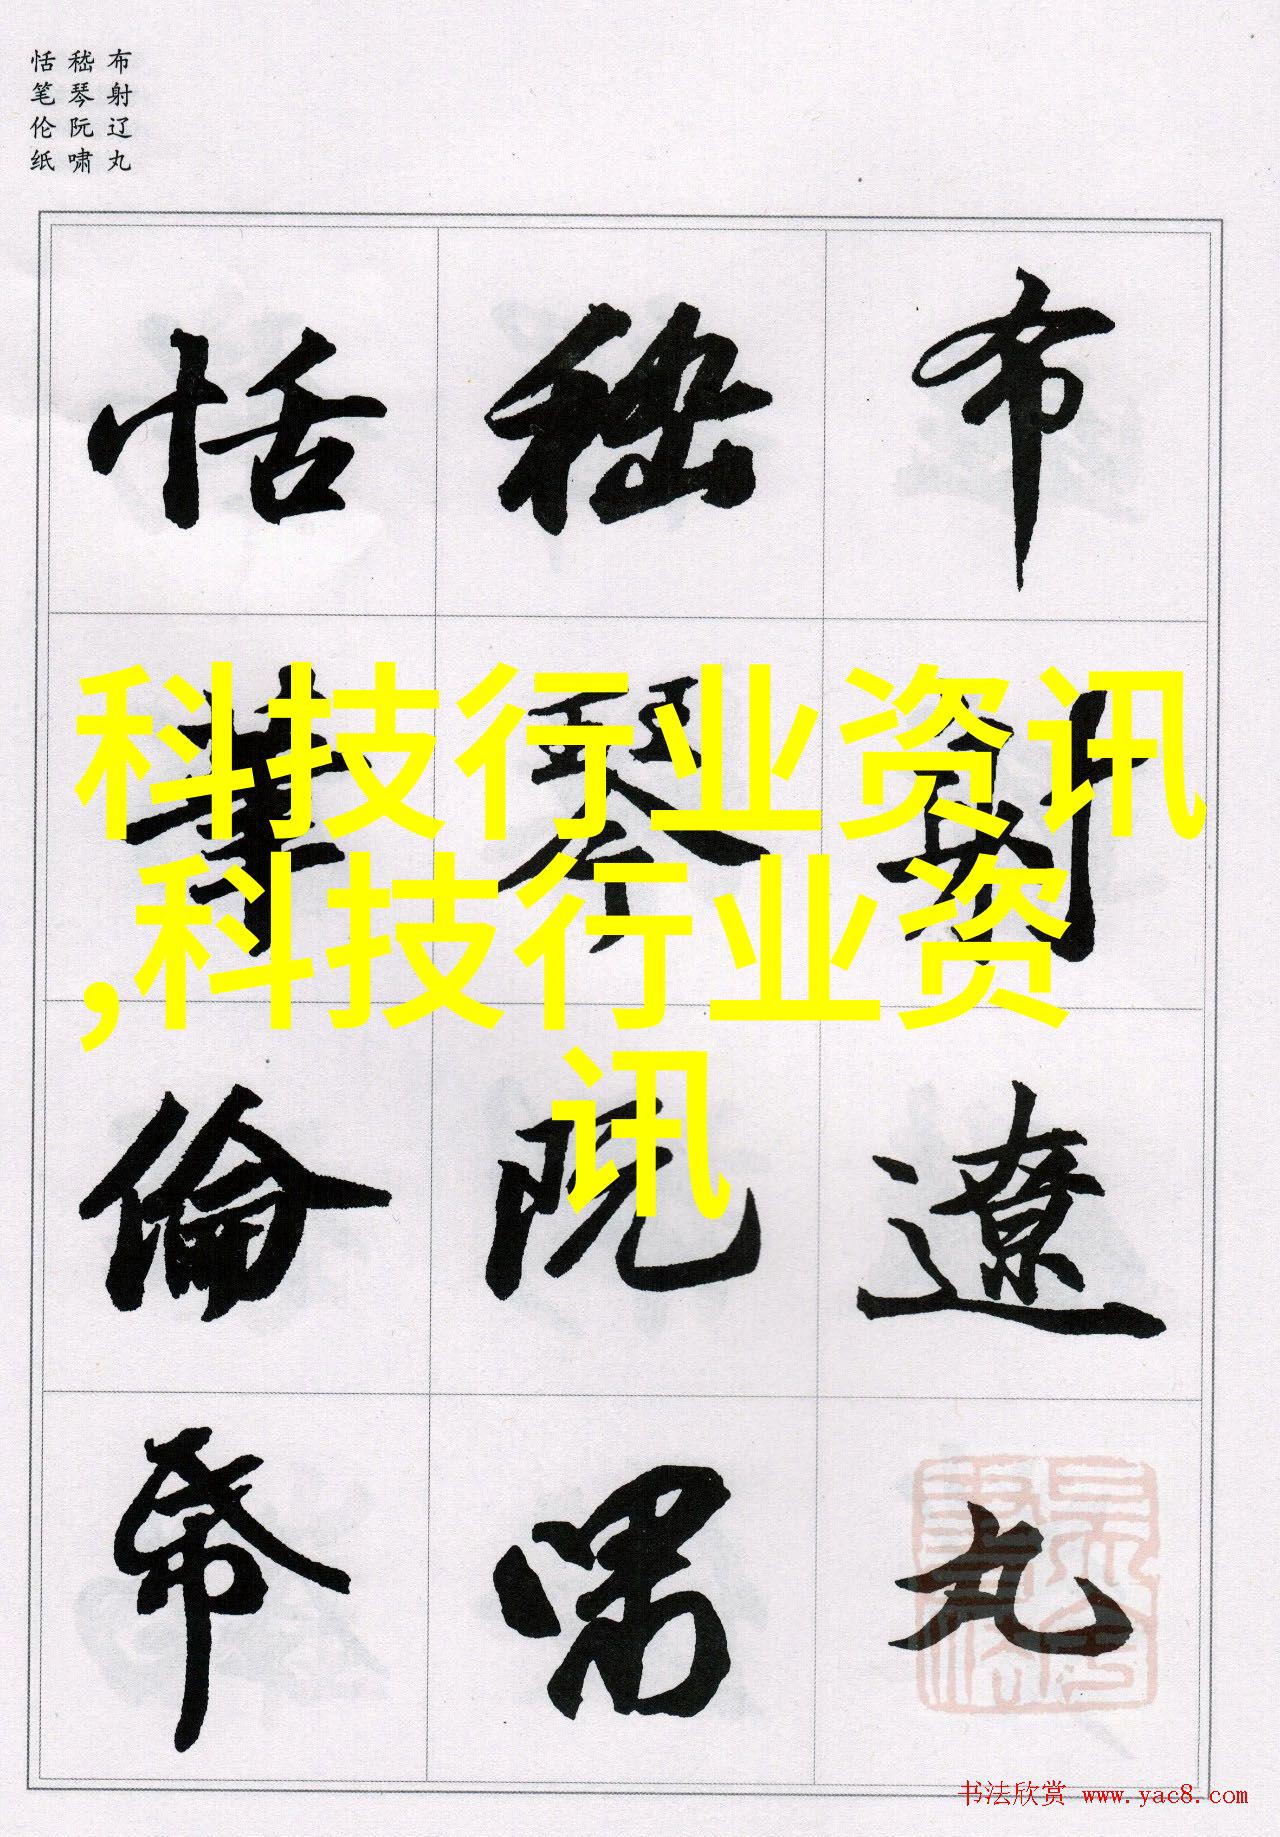 布射辽丸
嵇琴阮啸
恬笔伦纸
布射遼丸
嵇琴阮嘯
恬筆倫帋
科技行业资讯
,科技行业资
讯
书法欣赏 www.yac8.com